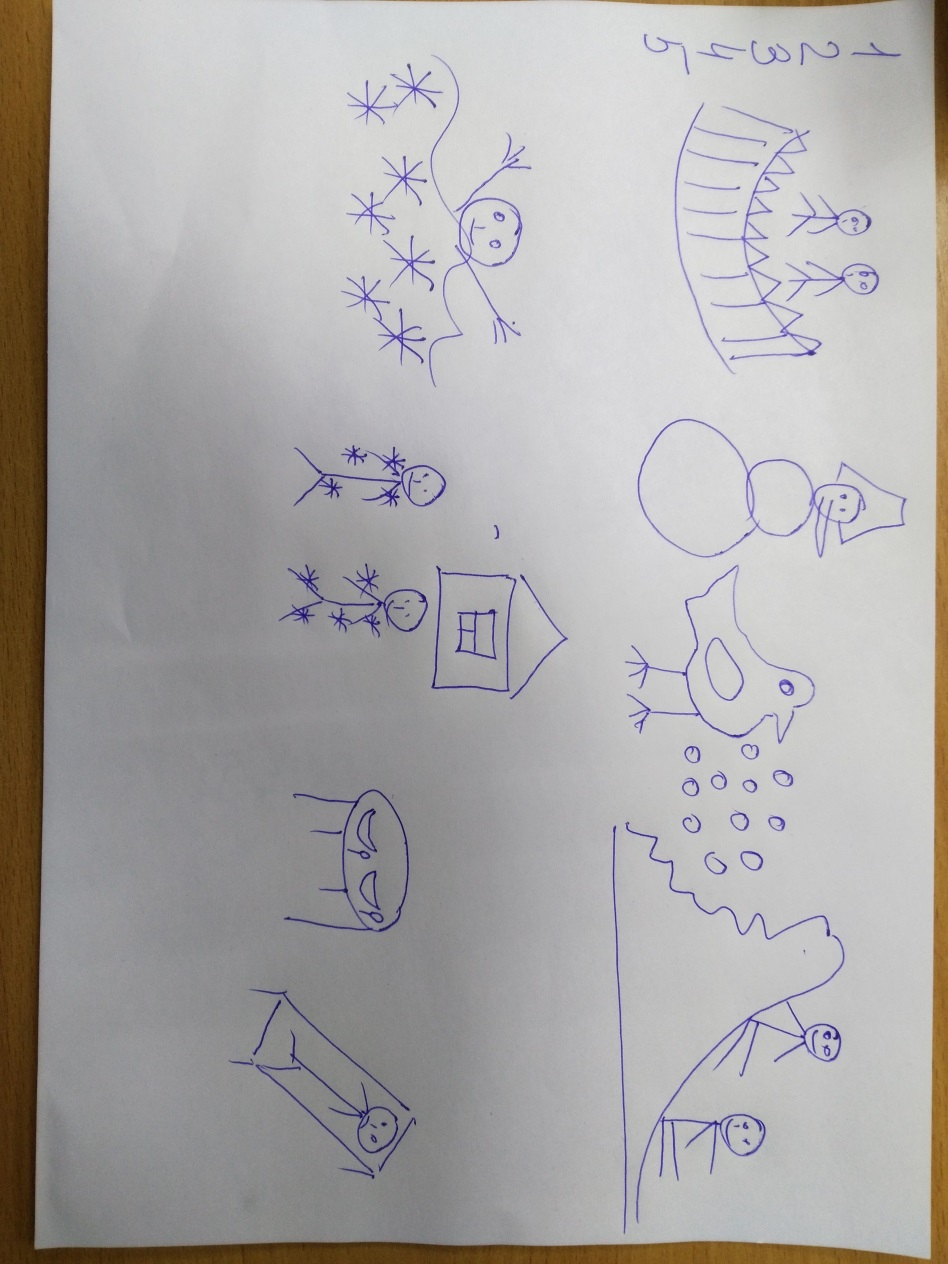 1
2
3
4
5